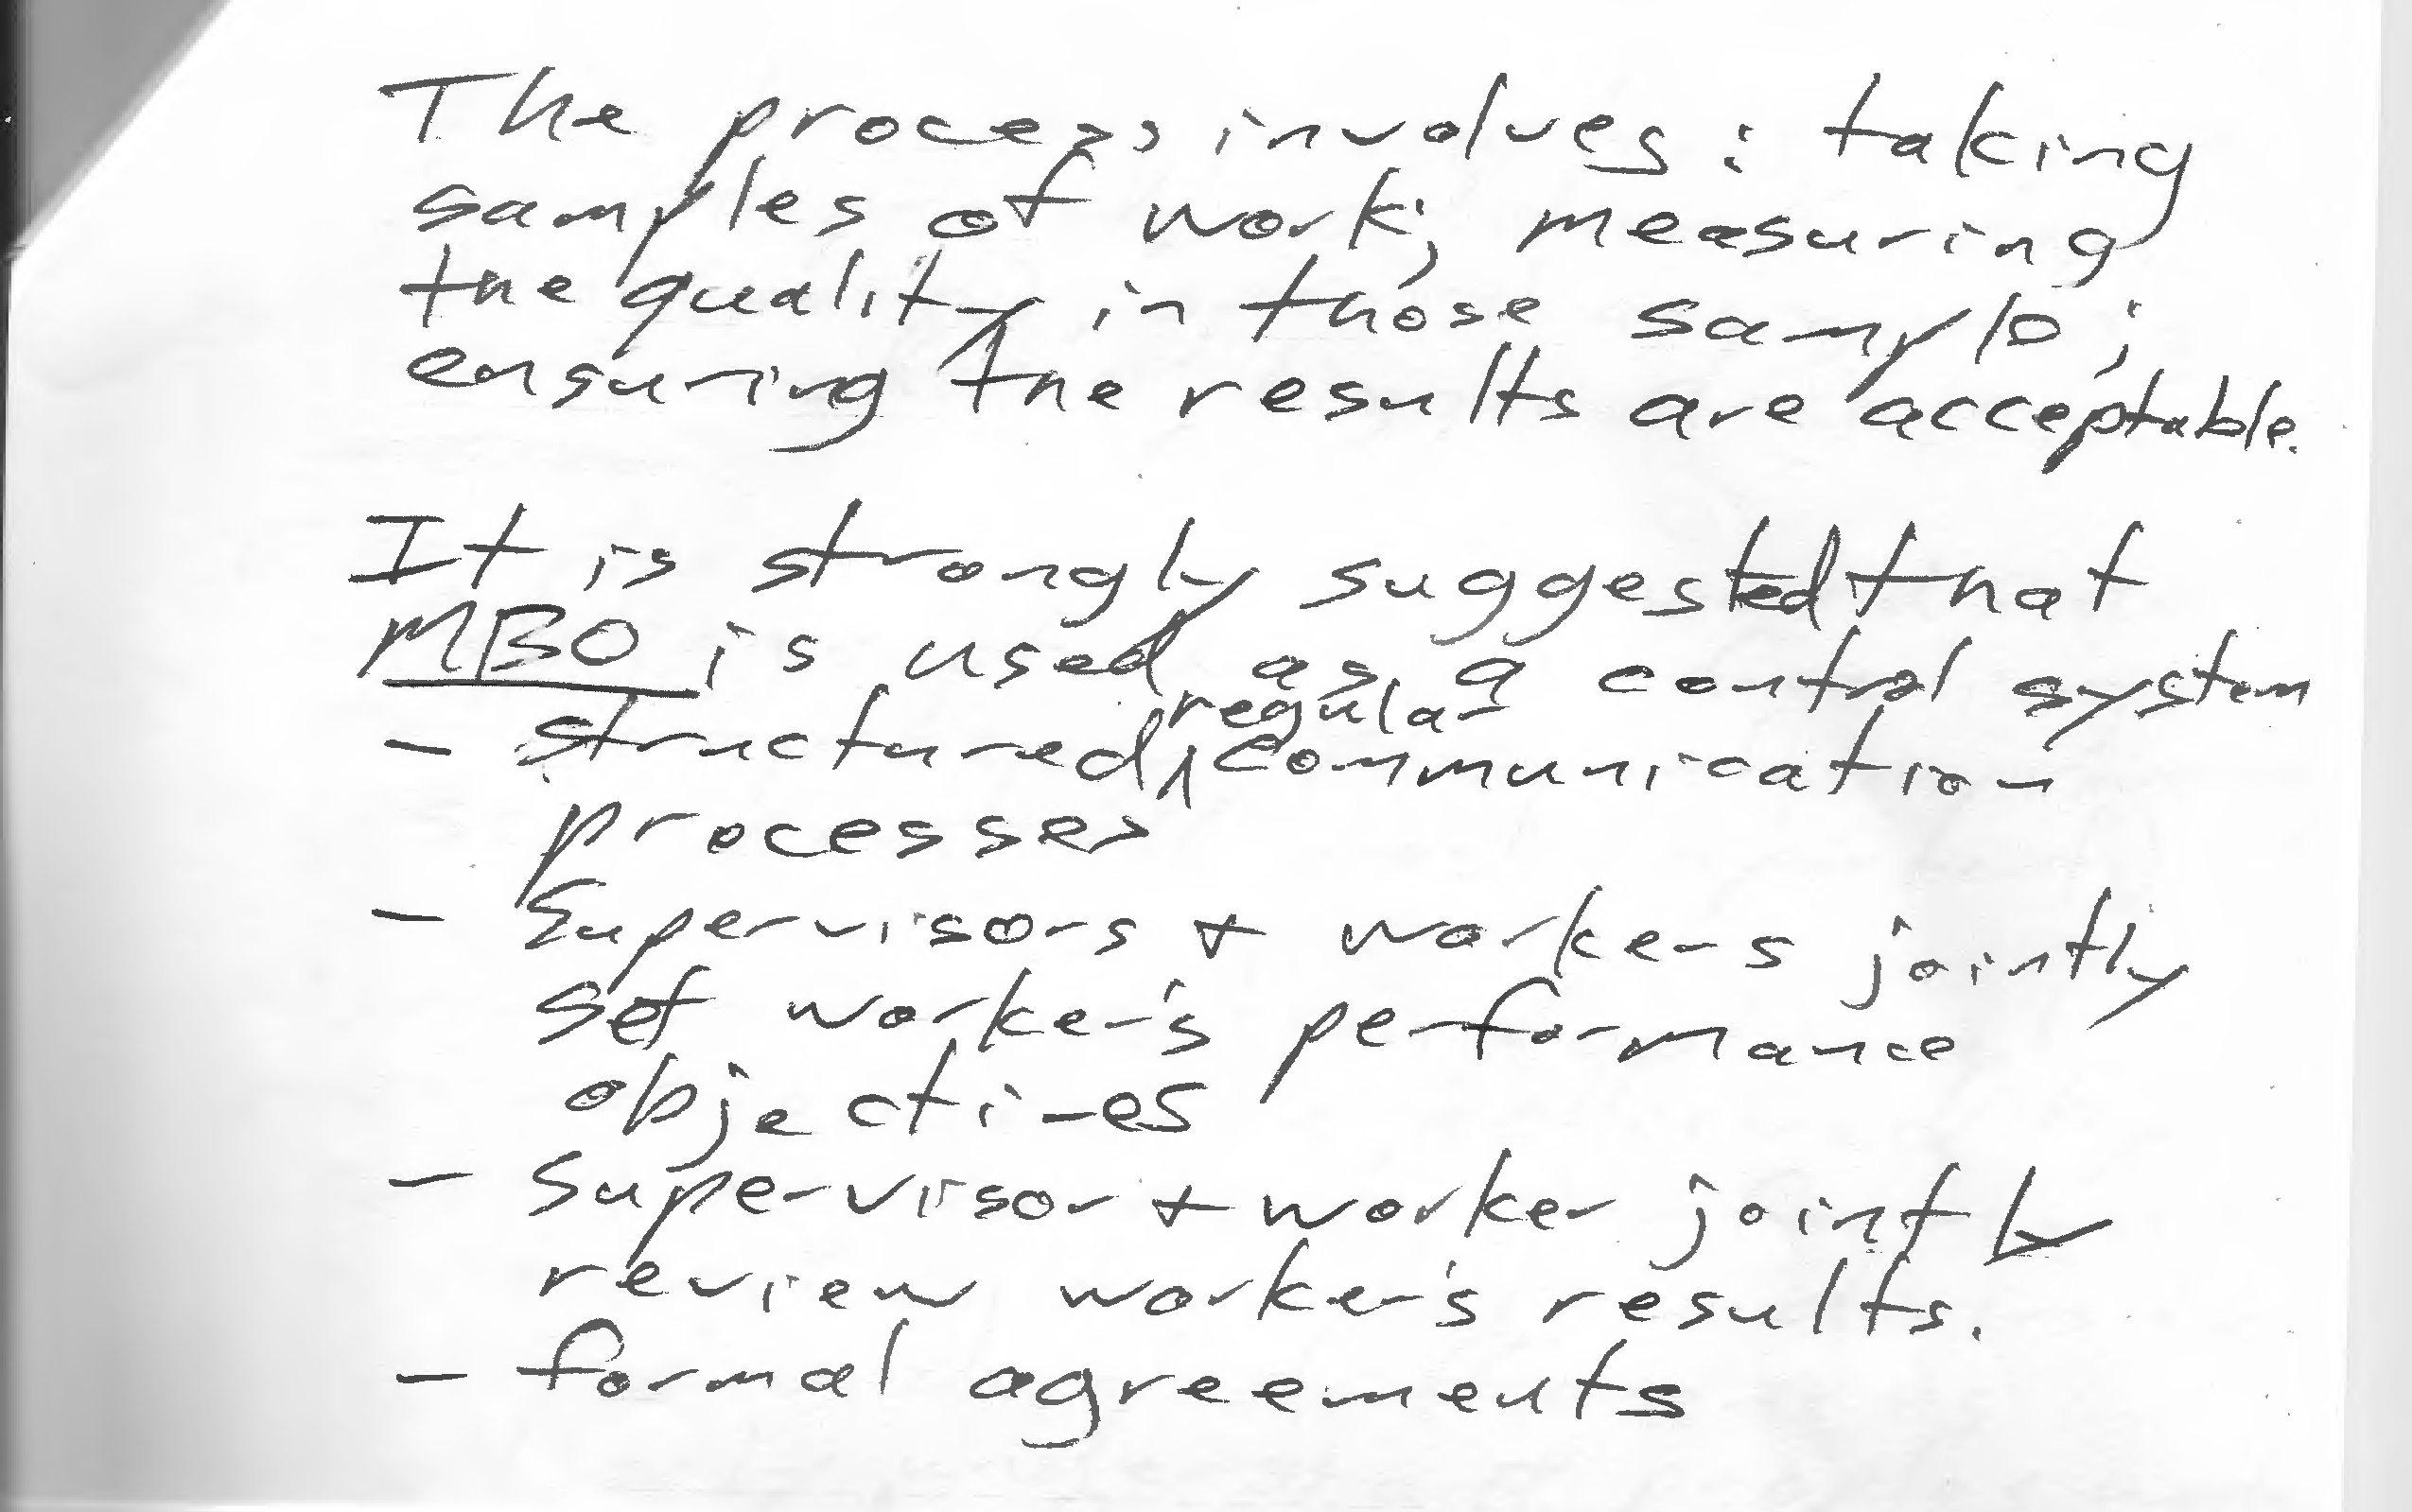 The process involves: taking
samples of work; measuring
the quality in those sample;
ensuring the results are acceptable.
It is strongly suggested that
MBO is used as a control system
- structured, regular communication
processes
- Supervisors + workers jointly
set worker's performance
objectives
- Supervisor + worker jointly
review worker's results.
- formal agreements